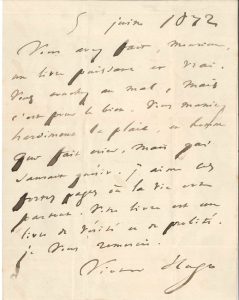 5 juin 1872
Vous avez fait, monsieur,
un livre puissant et vrai.
Vous touchez au mal, mais
c'est pour le bien. Vous maniez
hardiment la plaie, en homme
qui fait crier, mais qui
saurait guérir. J'aime ces
fortes pages où la vie est
partout. Votre livre est un
livre de vérité et de probité.
je vous remercie.
Victor Hugo